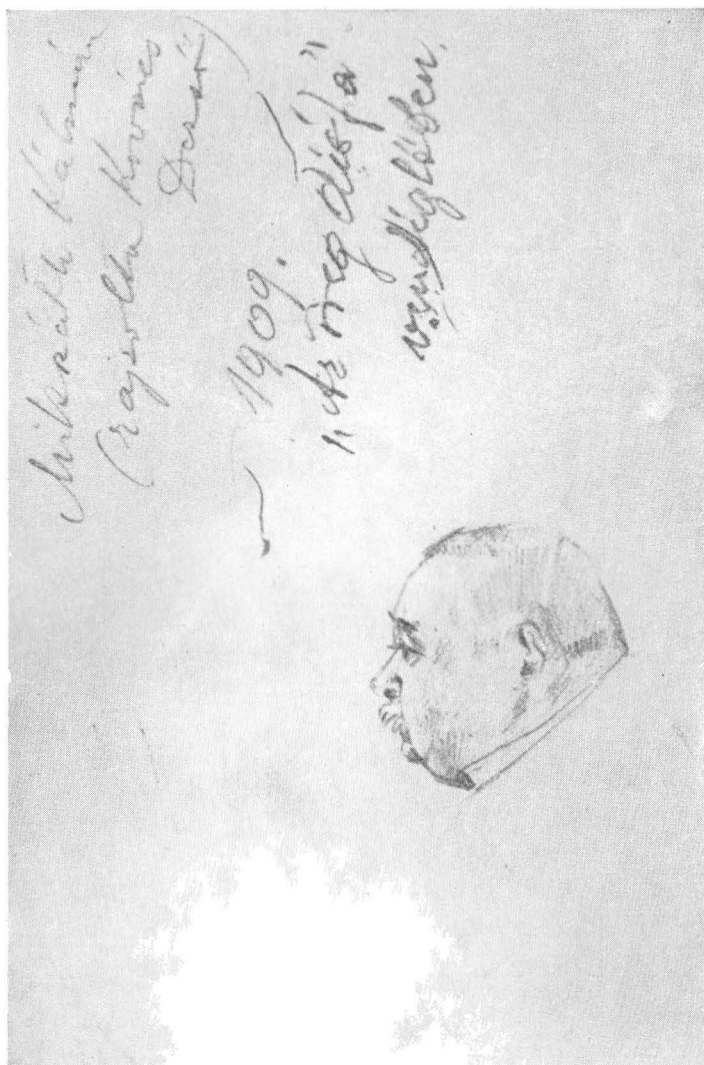 Mikszáth Kálmán
(rajzolta Kovács
Dezső)
1909.
„Az öreg diófa"
vendéglőben.